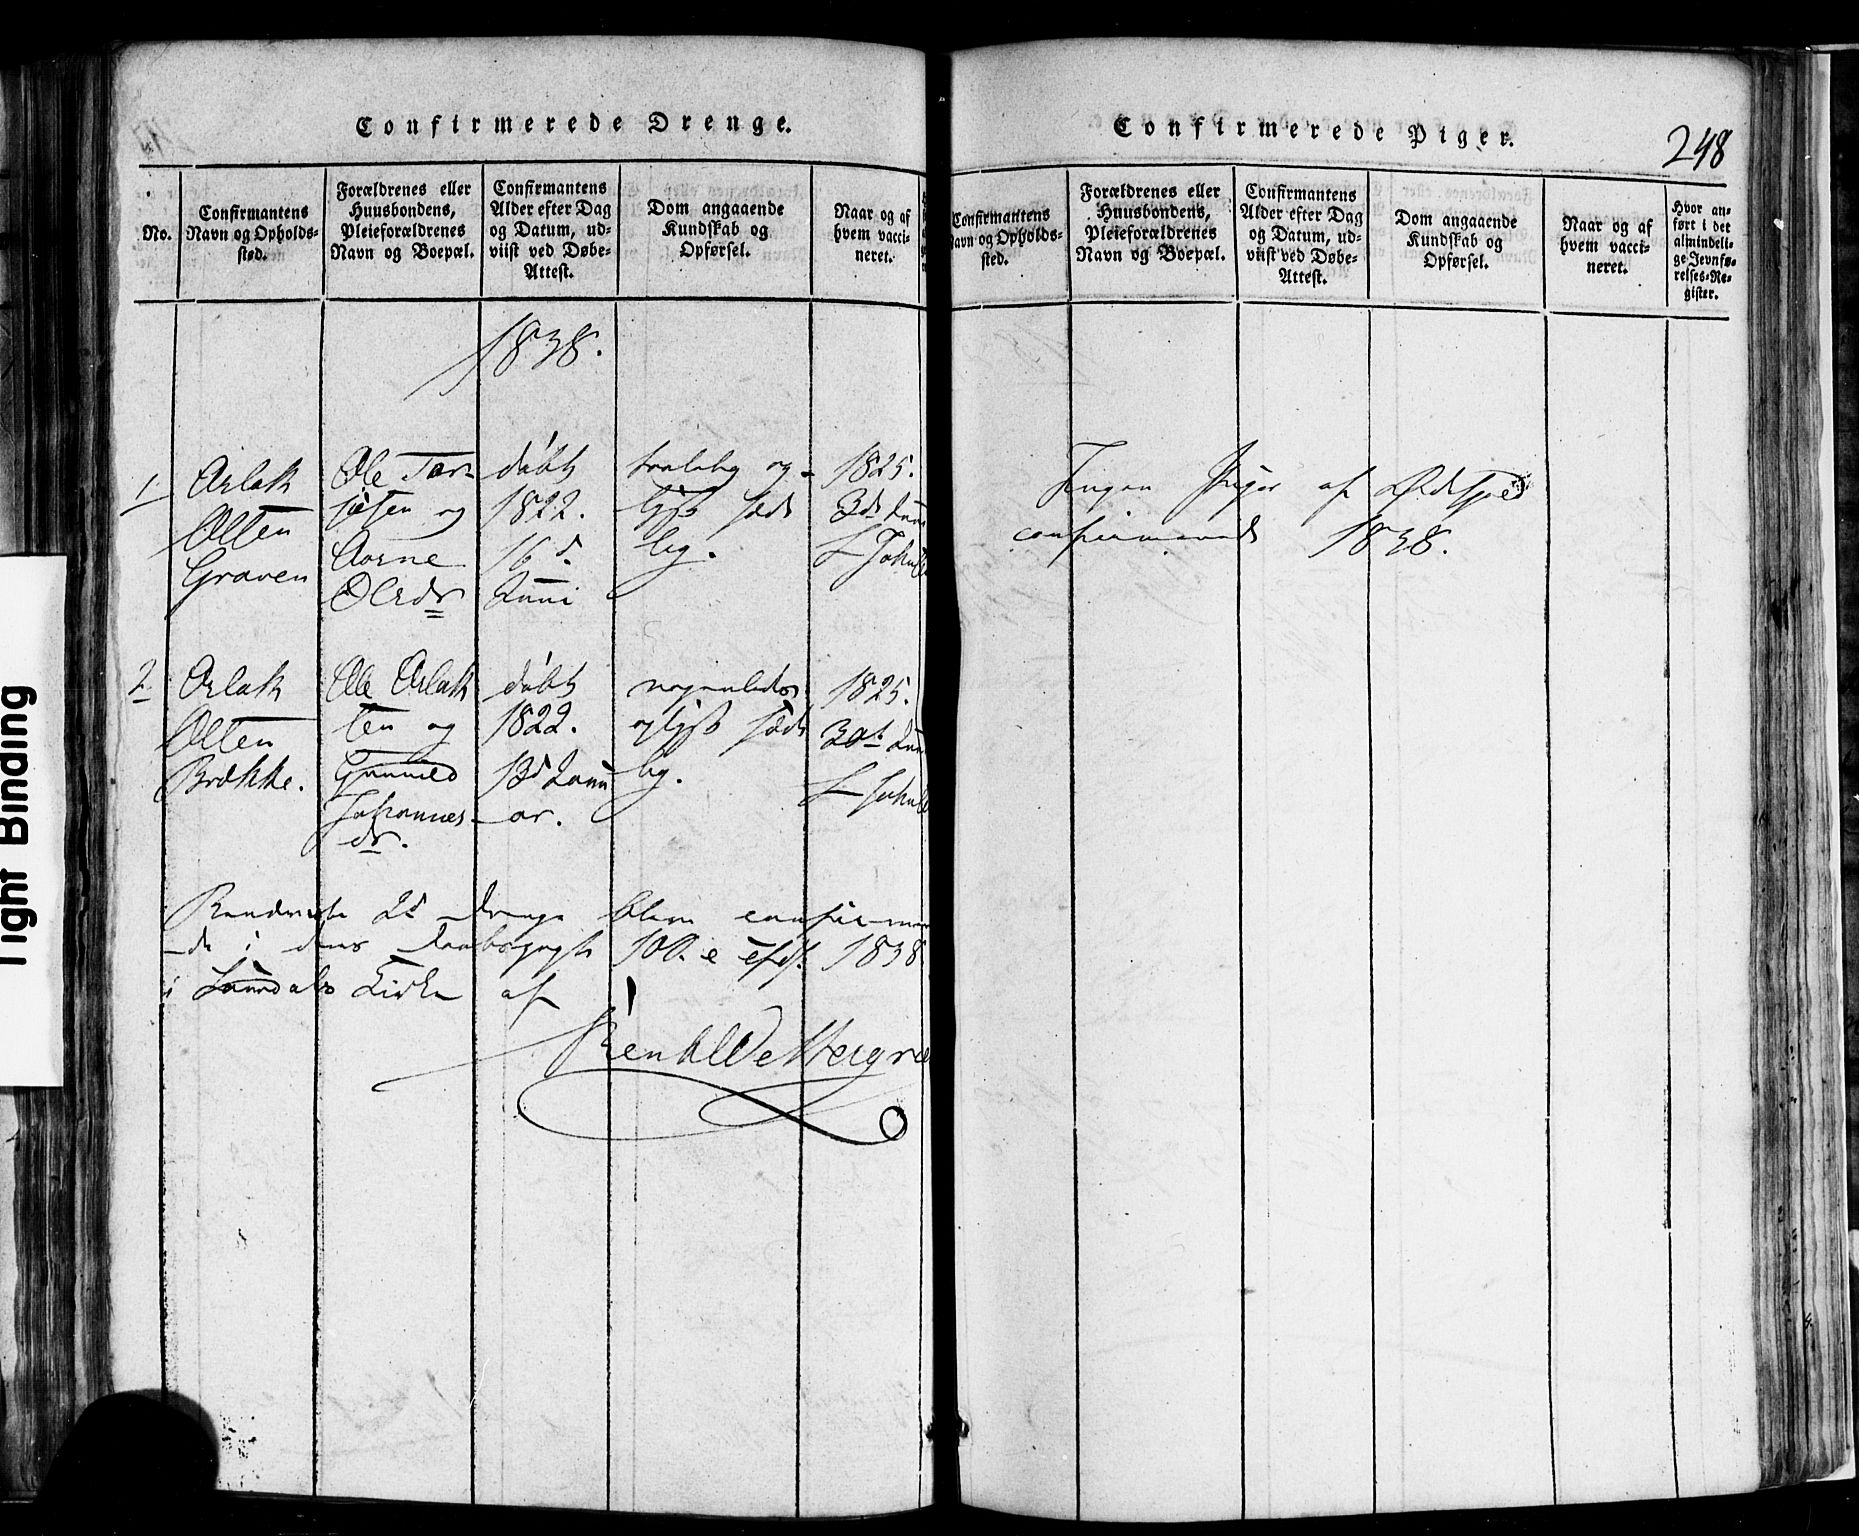 Confirmerede Drenge.
No.
Confirmantens
Navn og Opholds-
sted.
Forældrenes eller
Huusbondens,
Pleieforældrenes
Navn og Boepæl.
Confirmantens
Alder efter Dag
og Datum, ud-
viist ved Døbe-
Attest.
Dom angaaende
Kundskab og
Opførsel.
Naar og af
hvem vacci-
neret.
1838.
1.
Aslak
Olsen
Graven
Ole Tar-
jesen og
Aasne
Olsdr
døbt
1822.
16d
Juni
taalelig og
lyst sæde
lig.
1825.
2
Aslak
Olsen
Brække.
Ole Aslak
sen og
Gunnild
Johannes
dr.
døbt
1822.
13d Janu
ar.
nogenledes
og lyst sæde
lig.
1825.
30t
2d Drenge bleve confirmere
de i deres Daabspagt 1838
i Kirke af
Confirmerede Piger.
248
Confirmantens
Navn og Opholds-
sted.
Forældrenes eller
Huusbondens,
Pleieforældrenes
Navn og Boepæl.
Confirmantens
Alder efter Dag
og Datum, ud-
viist ved Døbe-
Attest.
Dom angaaende
Kundskab og
Opførsel.
Naar og af
hvem vacci-
neret.
Hvor an-
ført i det
almindeli-
ge Jevnfø-
relses-Re-
gister.
Ingen Piger af
confirmerede 1838.
Tight Binding